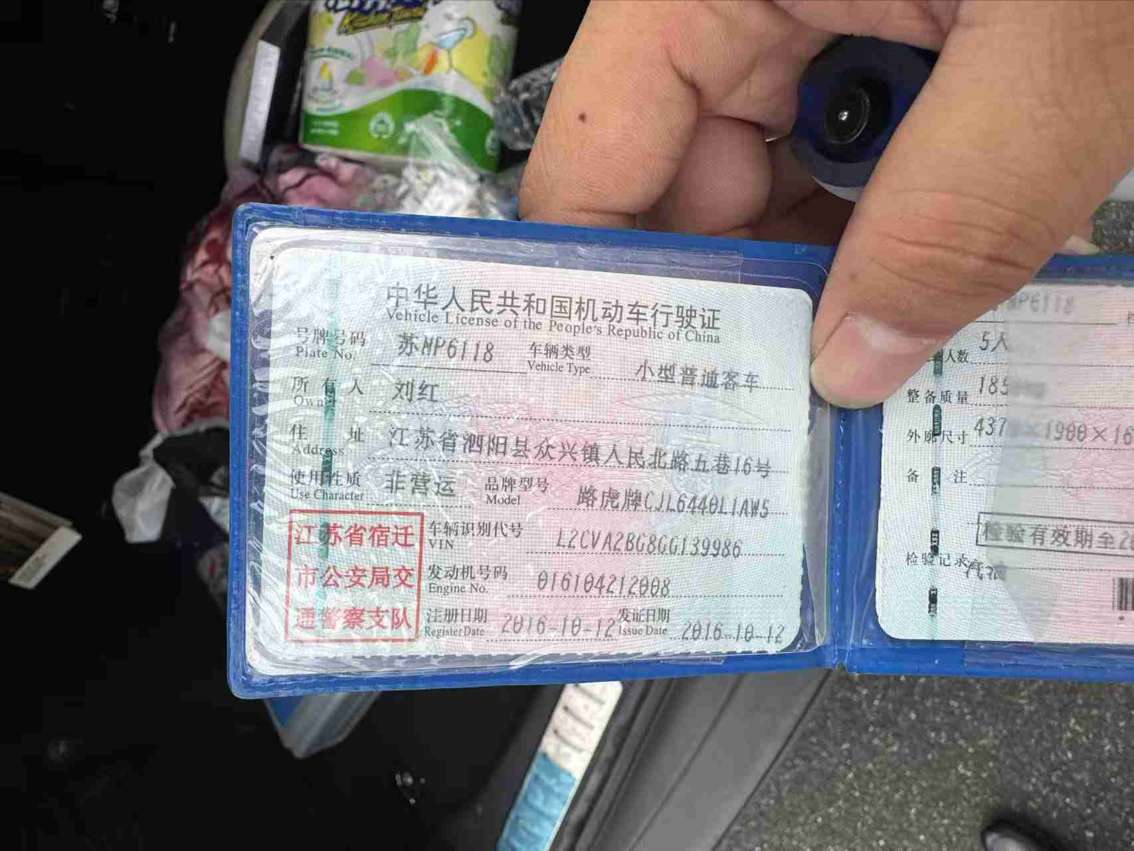 Kitchen Towel
中华人民共和国机动车行驶证
Vehicle License of the People's Republic of China
号牌号码 苏NP6118 车辆类型 小型普通客车
Plate No. Vehicle Type
所有人 刘红
Owner
住址 江苏省泗阳县众兴镇人民北路五巷16号
Address
使用性质 非营运 品牌型号 路虎牌CJL6440L1AW5
Use Character Model
江苏省宿迁
市公安局交
通警察支队
车辆识别代号 L2CVA2BG8GG139986
VIN
发动机号码 016104212008
Engine No.
注册日期 2016-10-12 发证日期 2016-10-12
Register Date Issue Date
NP6118
人数 5人
整备质量 185
外廓尺寸 437 ×1900×16
备注
检验有效期至20
检验记录 汽油